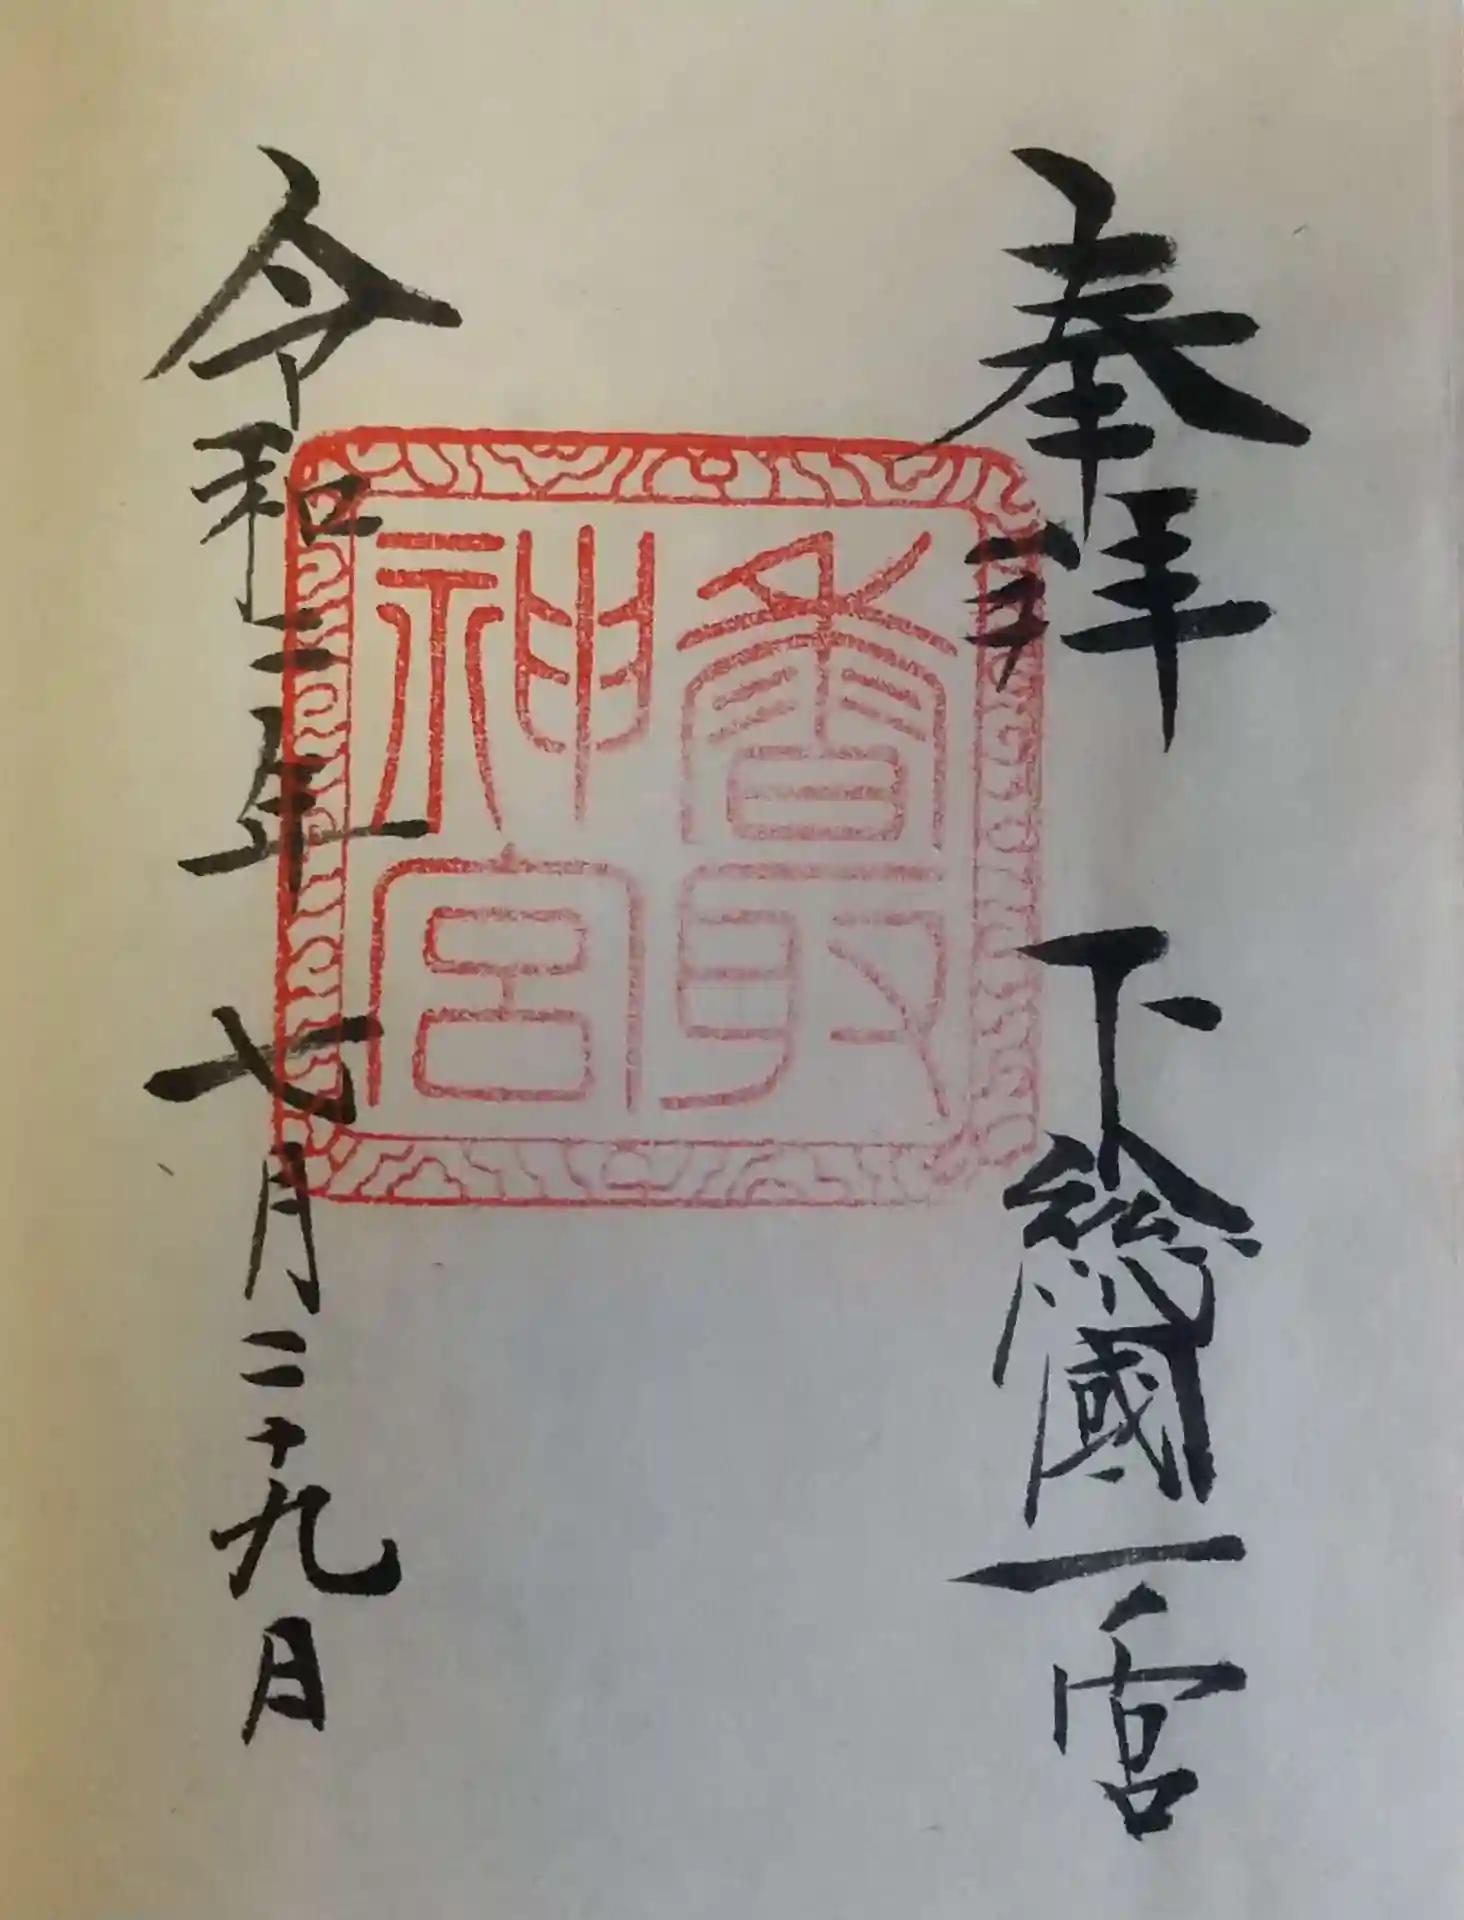 奉拝　下総國一宮
香取
神宮
令和二年　七月二十九日